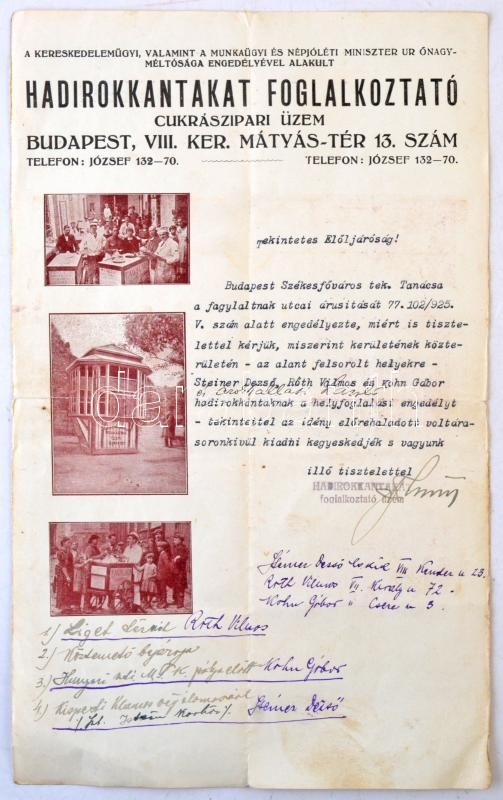 A KERESKEDELEMÜGYI, VALAMINT A MUNKAÜGYI ÉS NÉPJÓLÉTI MINISZTER UR ŐNAGY-
MÉLTÓSÁGA ENGEDÉLYÉVEL ALAKULT
HADIROKKANTAKAT FOGLALKOZTATÓ
CUKRÁSZIPARI ÜZEM
BUDAPEST, VIII. KER. MÁTYÁS-TÉR 13. SZÁM
TELEFON: JÓZSEF 132—70. TELEFON: JÓZSEF 132—70.
Tekintetes Előljáróság!
Budapest Székesfőváros tek. Tanácsa
a fagylaltnak utcai árusitását 77.102/925.
V. szám alatt engedélyezte, miért is tiszte-
lettel kérjük, miszerint kerületének közte-
rületén - az alant felsorolt helyekre -
Steiner Dezső, Róth Vilmos és Kohn Gábor
hadirokkantaknak a helyfoglalási engedélyt
- tekintettel az idény előrehaladott voltára-
soronkivül kiadni kegyeskedjék s vagyunk
illő tisztelettel
HADIROKKANTAKAT
foglalkoztató üzem
Steiner Dezső VIII Kender u 23.
Roth Vilmos VII. Király u 72-
Kohn Gábor " Csere u 3.
1) Liget Roth Vilmos
2.)
3.) Hungári előtt Kohn Gábor
4) Kispesti Steiner Dezső
István